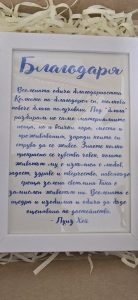 Благодаря
Вселената обича благодарността.
Колкото по-благодарен си, толкова
повече блага получаваш. Под "блага"
разбирам не само материалните
неща, но и всички хора, места и
преживявания, заради които си
струва да се живее. Знаете колко
прекрасно се чувства човек, когато
животът му е изпълнен с любов,
радост, здраве и творчество, навсякъде
среща зелена светлина и
живот. Вселената е
щедра и изобилна и обича да бъде
оценявана по достойнство.
- Луиз Хей